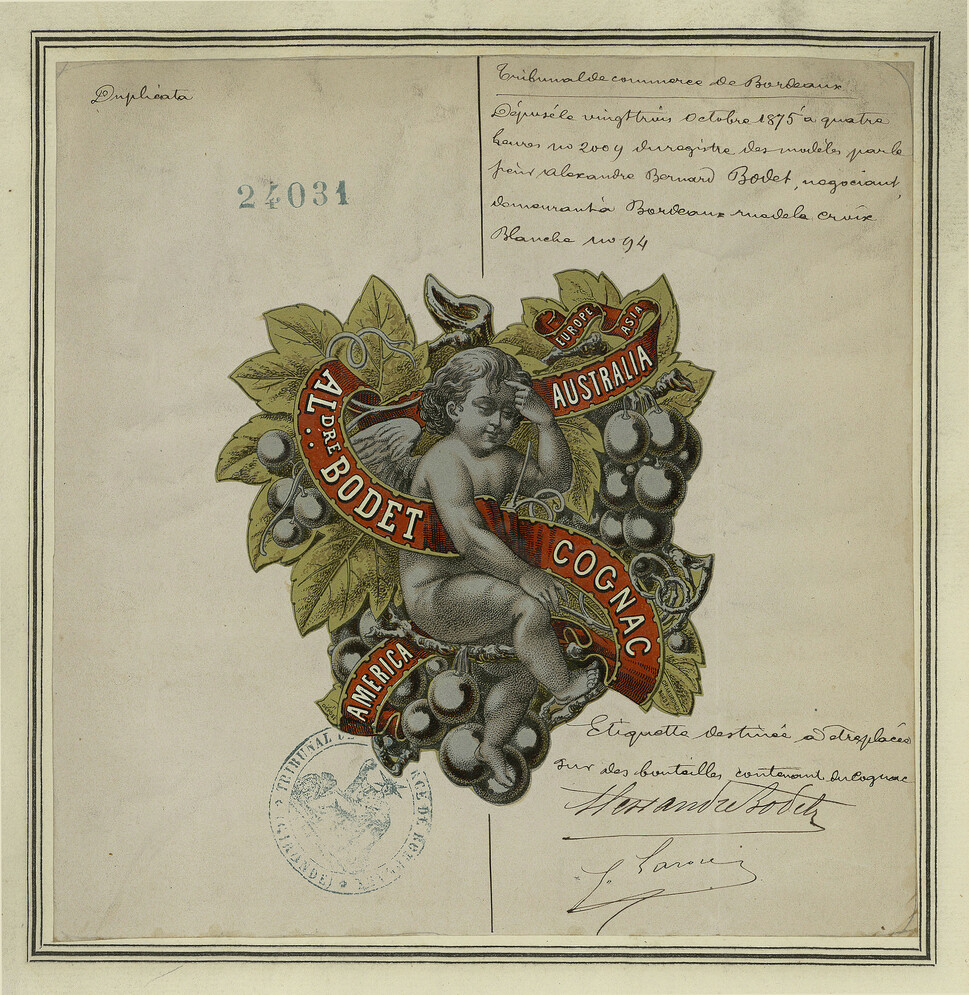 Duplicata
24031
Tribunal de commerce de Bordeaux
Déposé le vingt trois Octobre 1875 à quatre
heures no 2009 du registre des modèles par le
sieur Alexandre Bernard Bodet, negociant,
demeurant à Bordeaux rue de la Croix
Blanche no 94
EUROPE
ASIA
AUSTRALIA
ALDRE BODET
COGNAC
AMERICA
Etiquette destinée a etre placée
sur des bouteilles contenant du cognac
Alexandre Bodet
TRIBUNAL DE RCE DE (GIRONDE)